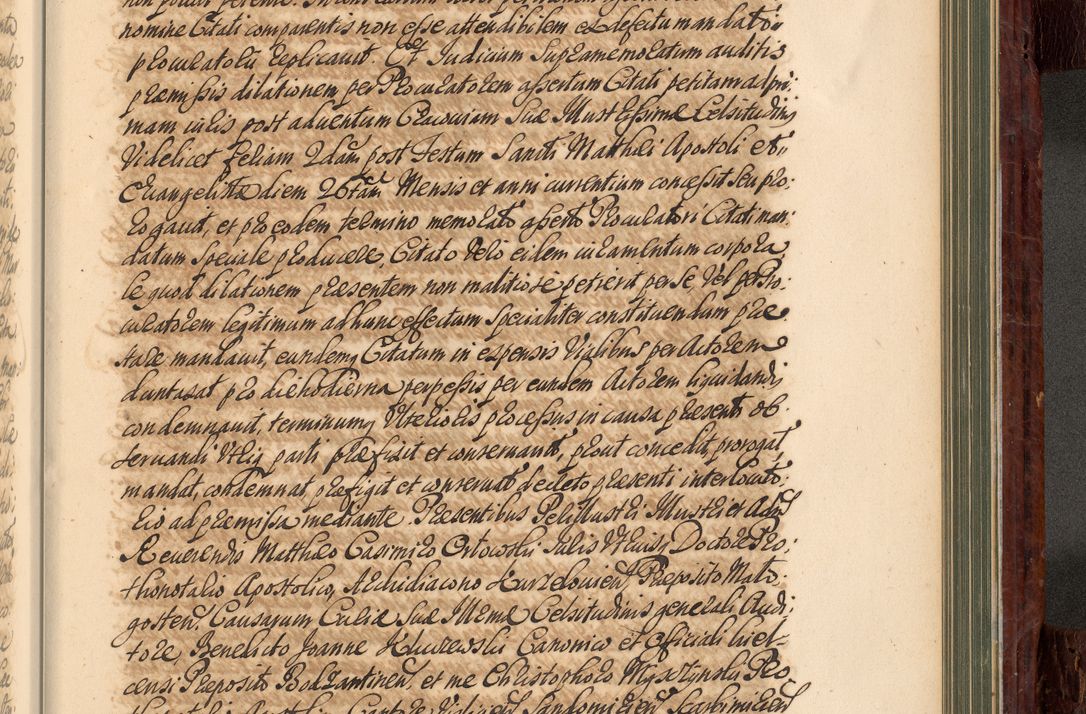 nomine Citati comparentis non esse attendibilem ex defectu mandati
procuratorii replicavit. Et Judicium Supramemoratum auditis
præmissis dilationem per Procuratorem assertum Citati petitam ad pri:
mam iuris post adventum Cracoviam Suæ Illustrissimæ Celsitudinis
Videlicet feriam 2dam post Festum Sancti Matthæi Apostoli et
Evangelistæ diem 26tam Mensis et anni currentium concessit seu pro:
rogavit, et pro eodem termino memorato asserto Procuratori Citati man:
datum speciale producere, Citato vero eidem iuramentum corpora
le quod dilationem præsentem non malitiose petierit per se vel per Pro:
curatorem legitimum ad hunc effectum specialiter constituendum præ
stare mandavit, eundemq Citatum in expensis Vigilibus per Actorem
duntaxat pro die hodierna perpessis per eundem Actorem liquidandis
condemnavit, terminumq Ulterioris processus in causa præsenti ob
servandi Utriq parti præfixit et conservavit, prout concedit, prorogat,
mandat, condemnat, præfigit et conservat decreto præsenti interlocuto:
rio ad præmissa mediante. Præsentibus Perillustri Illustri et Adm
Reverendis Matthæo Casimiro Ortowski Iuris Utriusq Doctore Pro:
thonotario Apostolico, Archidiacono Kurzeloviensi, Præposito Malo
gosten. Causarum Curiæ Suæ Illmæ Celsitudinis generali Audi:
tore, Benedicto Joanne Canonico et Officiali Kiel
censi Præposito Bodzantinen, et me Christophoro Pro
Sandomirien Scarbimirien